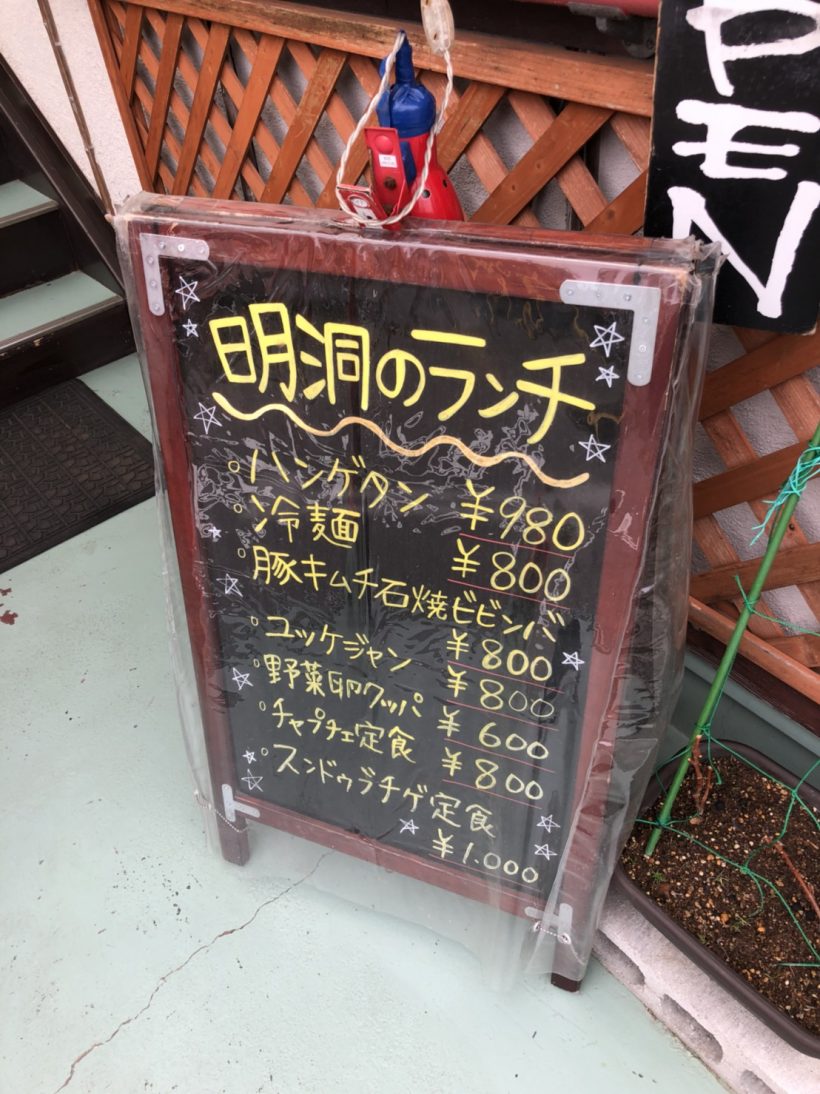 PEN
明洞のランチ
ハンゲタン ¥980
冷麺 ¥800
豚キムチ石焼ビビンバ
¥800
ユッケジャン ¥800
野菜卵クッパ ¥600
チャプチェ定食 ¥800
スンドゥブチゲ定食
¥1.000